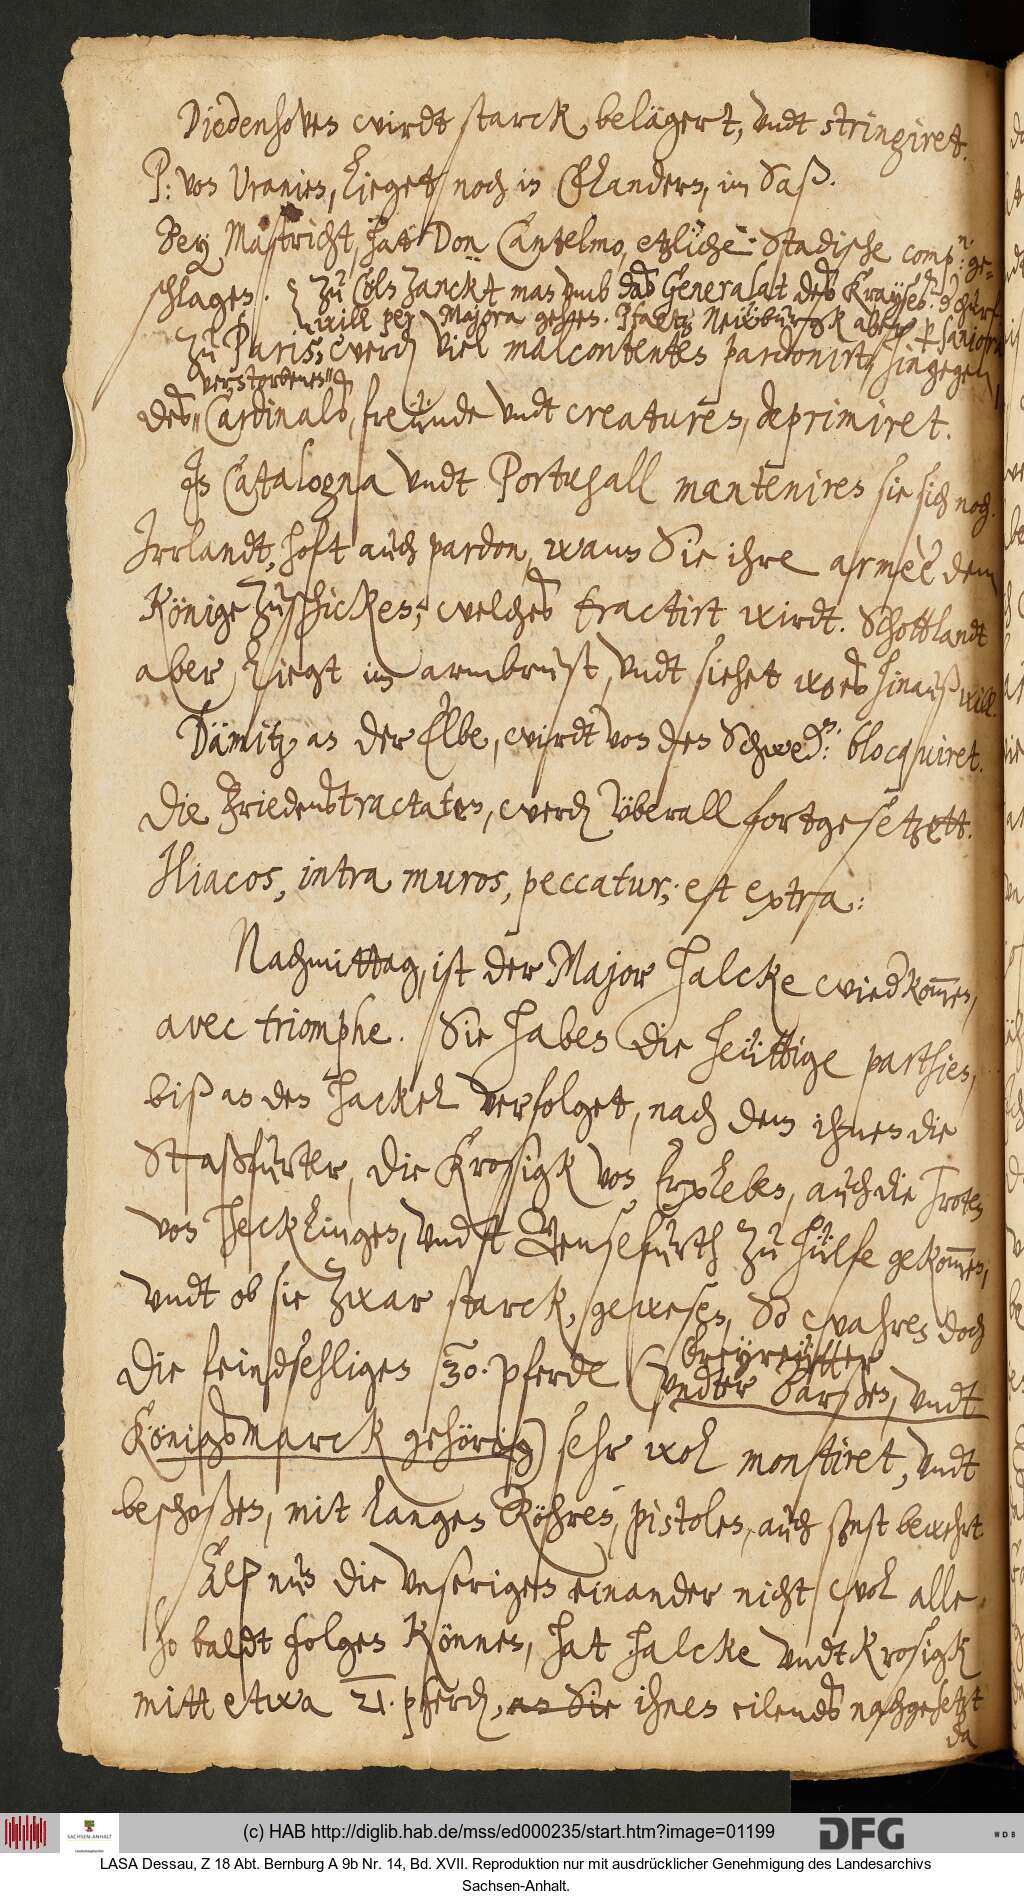 Diedenhoven wirdt starck belägert, undt stringiret.
P: von Uranien, lieget noch in Flandern, im Saß.
Bey Mastricht, hat Don Cantelmo, etzliche Stadische comp.n: ge-
schlagen. Zu Cöln zanckt man umb daß Generalat deß Krayses:
will per Majora gehen. Pfaltz Newburgk aber
Zu Paris, werden viel malcontenten pardonirt, hingegen
verstorbenen
deß Cardinals, freünde undt creaturen, deprimiret.
In Catalogna undt Portugall manteniren sie sich noch.
Irrlandt, hoft auch pardon, wann Sie ihre armèè dem
Könige zuschicken; welches tractirt wirdt. Schottlandt
aber liegt im armbrust, undt siehet wo es hinauß will.
Dämitz an der Elbe, wirdt von den Schwed.n: blocquiret.
Die Friedenstractaten, werden überall fortgesetzett.
Iliacos, intra muros, peccatur; est extra:
Nachmittag, ist der Major Halcke wiedkommen,
avec triomphe. Sie haben die heüttige parthien,
biß an den Hackel verfolget, nach dem ihnen die
Staßfurter, die Krosigk von Erxleben, auch die Troten
von Hecklingen, undt Gensefurth zu hülfe gekommen,
undt ob sie zwar starck, gewesen, So wahren doch
die feindsehligen 30. pferde (
breyreütter
undter Barßen, undt
Königsmarck gehörig) sehr wol montiret, undt
beschoßen, mit langen Röhren, pistolen, auch sonst bewehrt
Alß nun die unserigen einander nicht wol alle
so baldt folgen können, hat Halcke undt Krosigk
mitt etwa 21. pferden, an Sie ihnen eilends nachgesetzt
da
(c) HAB http://diglib.hab.de/mss/ed000235/start.htm?image=01199
SACHSEN-ANHALT
DFG
WDB
LASA Dessau, Z 18 Abt. Bernburg A 9b Nr. 14, Bd. XVII. Reproduktion nur mit ausdrücklicher Genehmigung des Landesarchivs
Sachsen-Anhalt.